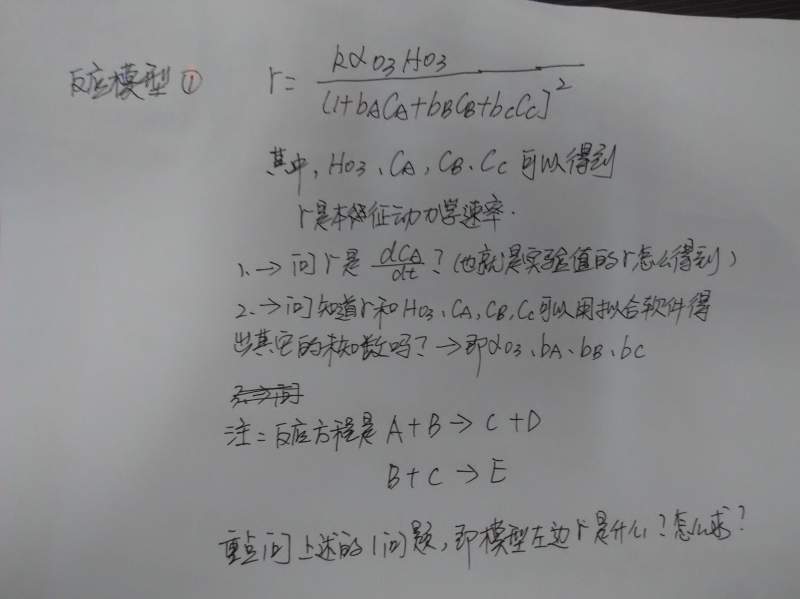 反应模型① r = kαO3 HO3 / (1+bACA+bBCB+bCCC]²
其中, HO3、CA, CB、CC 可以得到
r是本征动力学速率.
1. → 问r是 dCA/dt ? (也就是实验值的r怎么得到)
2. → 问知道r和HO3、CA, CB, CC可以用拟合软件得
出其它的未知数吗? → 即αO3、bA、bB、bC
注: 反应方程是 A+B → C+D
B+C → E
重点问上述的1问题, 即模型左边r是什么? 怎么求?